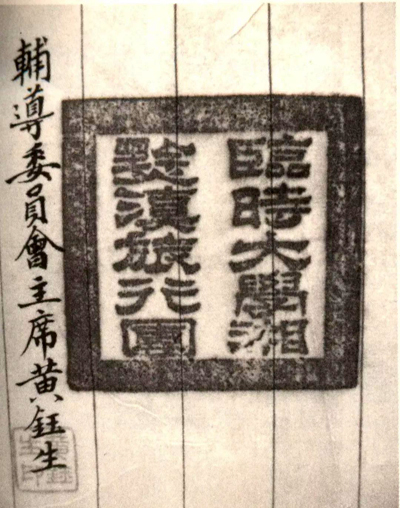 臨時大學湘
黔滇旅行團
輔導委員會主席黃鈺生
黃鈺
生印